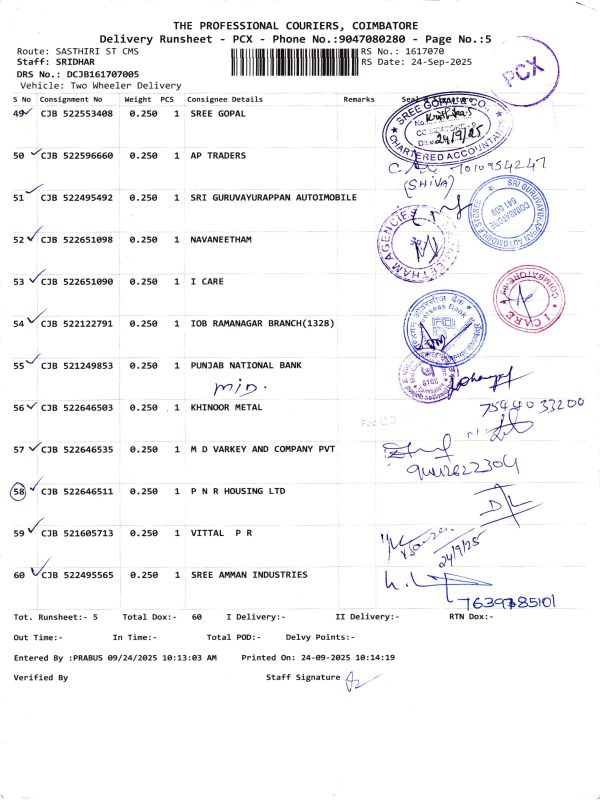 THE PROFESSIONAL COURIERS, COIMBATORE
Delivery Runsheet - PCX - Phone No.:9047080280 - Page No.:5
Route: SASTHIRI ST CMS
RS No.: 1617070
Staff: SRIDHAR
RS Date: 24-Sep-2025
DRS No.: DCJB161707005
Vehicle: Two Wheeler Delivery
PCX
S No Consignment No Weight PCS Consignee Details Remarks
49 CJB 522553408 0.250 1 SREE GOPAL
SREE GOPAL & CO.,
24/9/25
CHARTERED ACCOUNTANTS
50 CJB 522596660 0.250 1 AP TRADERS
(SHIVA)
51 CJB 522495492 0.250 1 SRI GURUVAYURAPPAN AUTOIMOBILE
SRI GURUVAYURAPPAN AUTOMOBILE STORES
COIMBATORE
52 CJB 522651098 0.250 1 NAVANEETHAM
53 CJB 522651090 0.250 1 I CARE
I CARE
54 CJB 522122791 0.250 1 IOB RAMANAGAR BRANCH(1328)
Overseas Bank
55 CJB 521249853 0.250 1 PUNJAB NATIONAL BANK
56 CJB 522646503 0.250 1 KHINOOR METAL
7594033200
57 CJB 522646535 0.250 1 M D VARKEY AND COMPANY PVT
58 CJB 522646511 0.250 1 P N R HOUSING LTD
59 CJB 521605713 0.250 1 VITTAL P R
24/9/25
60 CJB 522495565 0.250 1 SREE AMMAN INDUSTRIES
Tot. Runsheet:- 5 Total Dox:- 60 I Delivery:- II Delivery:- RTN Dox:-
Out Time:- In Time:- Total POD:- Delvy Points:-
Entered By :PRABUS 09/24/2025 10:13:03 AM Printed On: 24-09-2025 10:14:19
Verified By Staff Signature